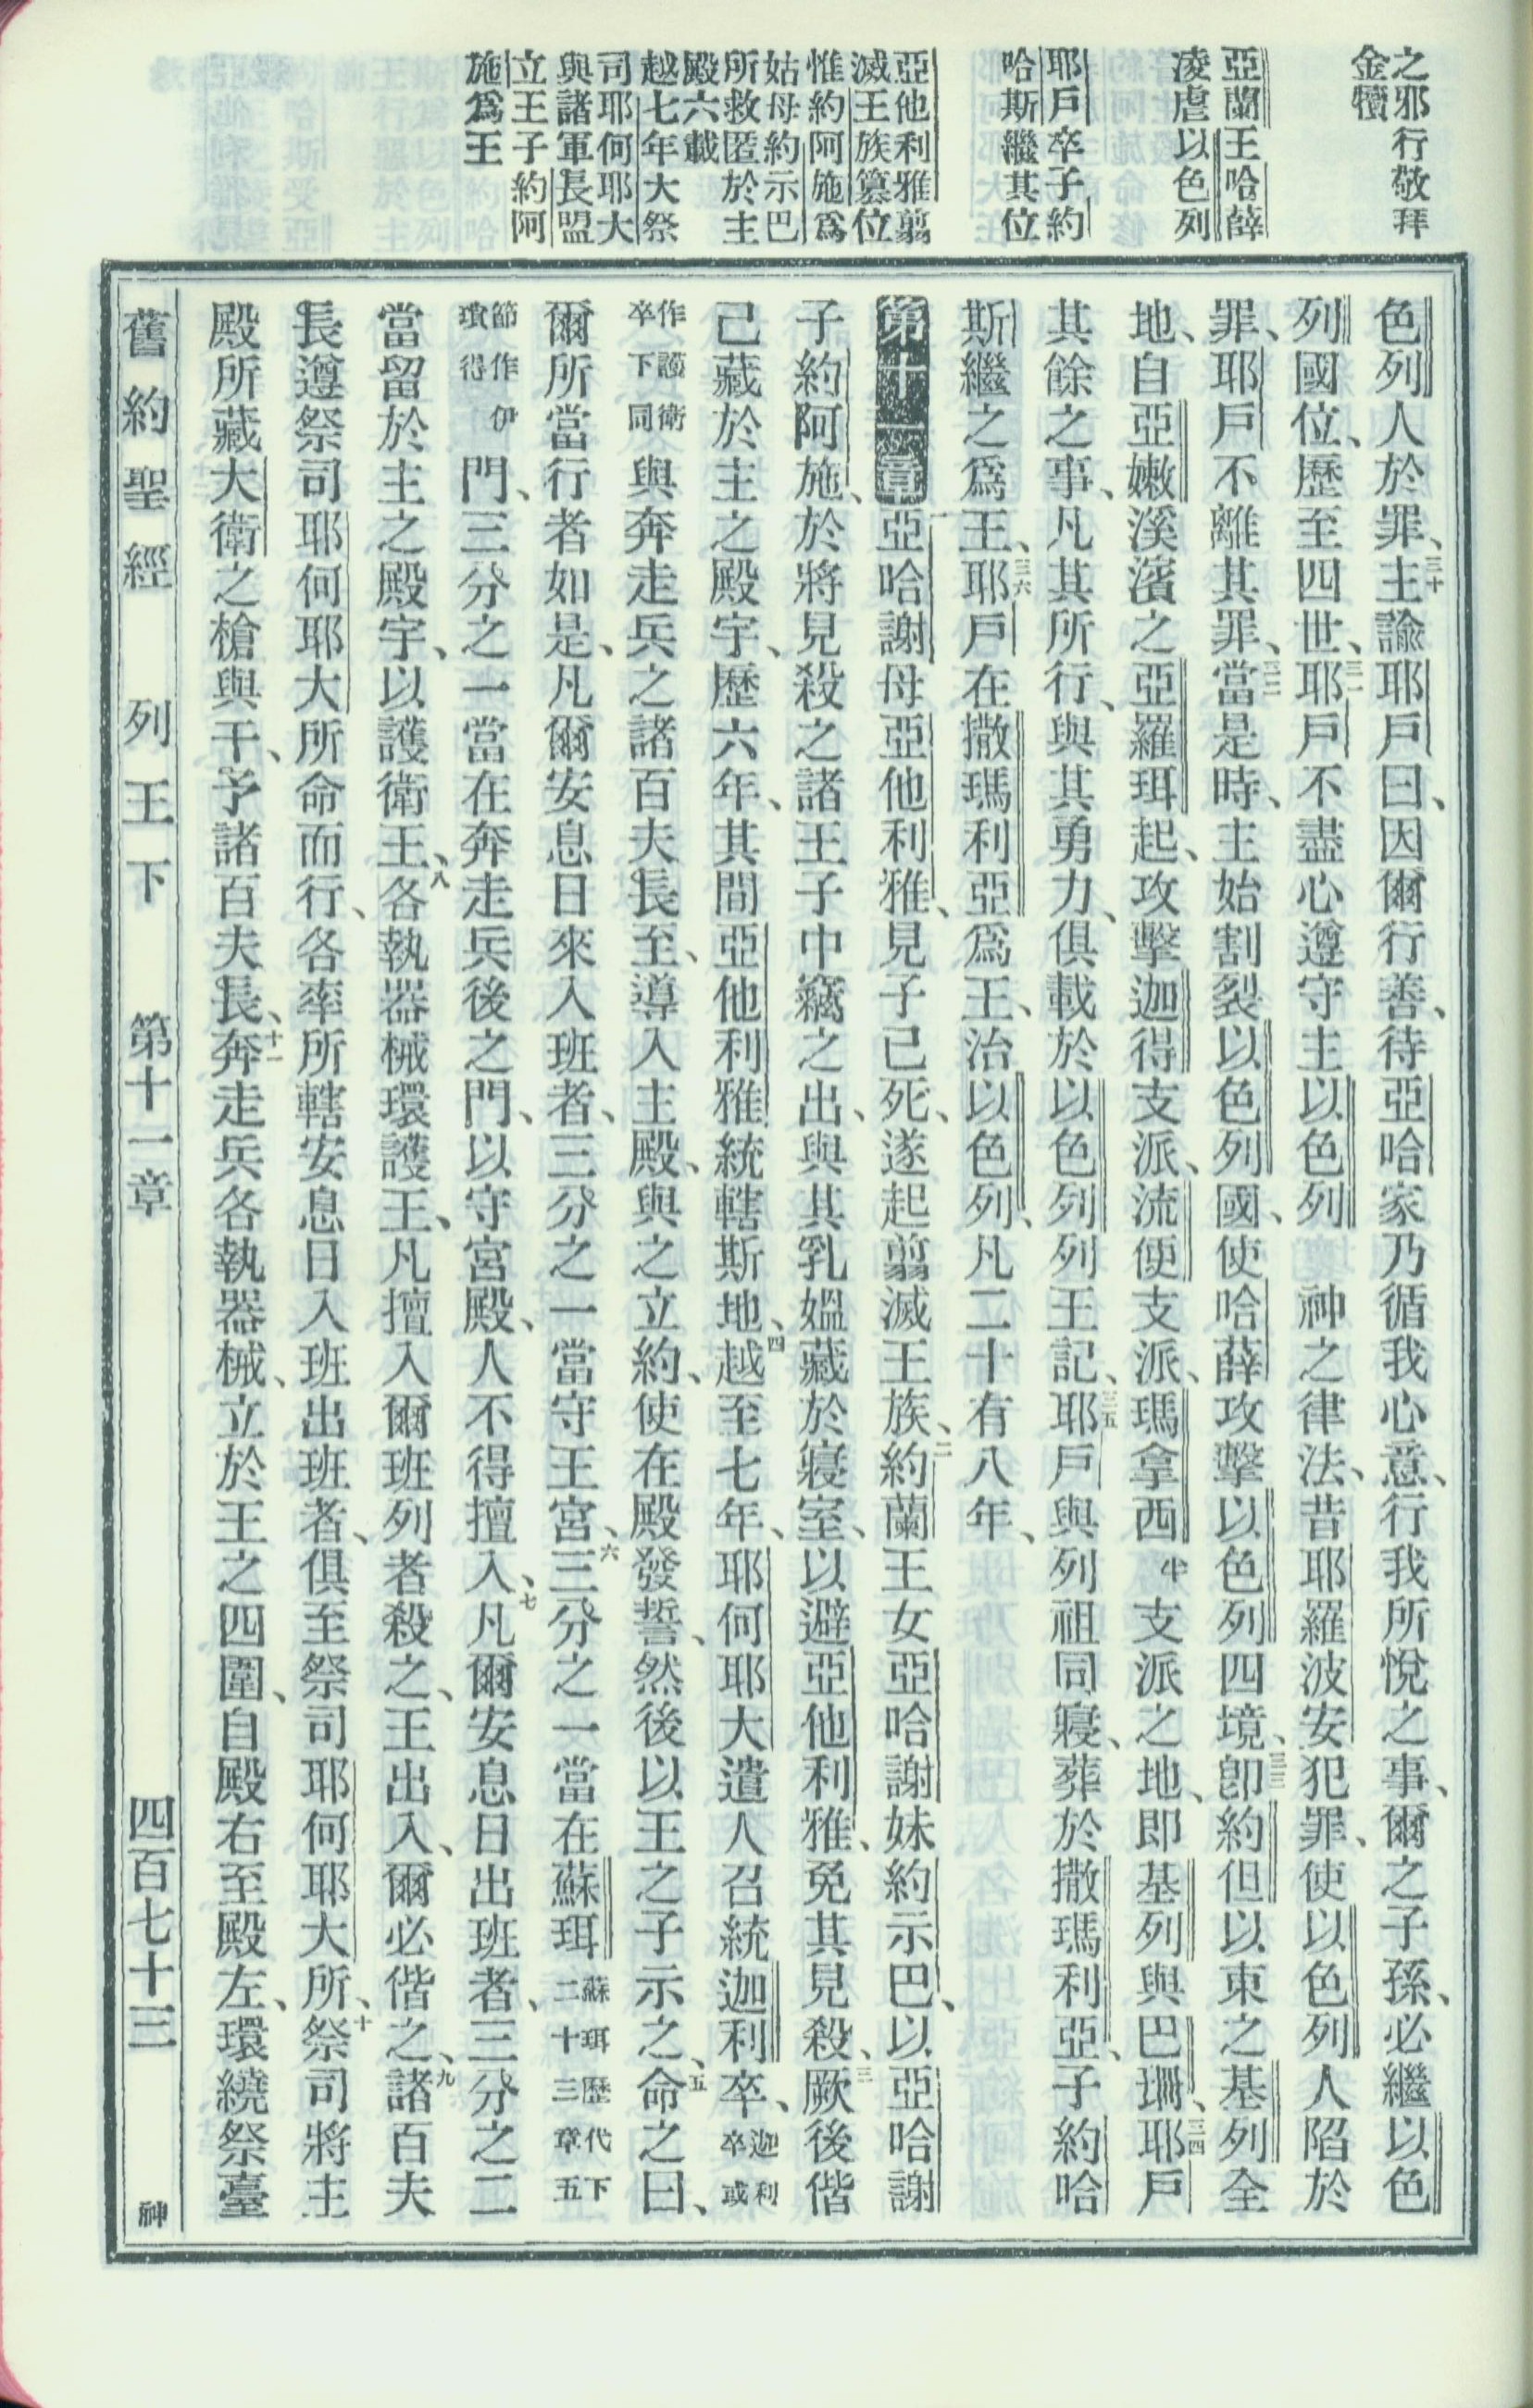 之邪行敬拜
金犢
亞蘭王哈薛
凌虐以色列
耶戶卒子約
哈斯繼其位
亞他利雅翦
滅王族篡位
惟約阿施爲
姑母約示巴
所救匿於主
殿六載
越七年大祭
司耶何耶大
與諸軍長盟
立王子約阿
施爲王
色列人於罪、三十主諭耶戶曰、因爾行善、待亞哈家乃循我心意、行我所悅之事、爾之子孫、必繼以色
列國位、歷至四世、三一耶戶不盡心遵守主以色列 神之律法、昔耶羅波安犯罪、使以色列人陷於
罪、耶戶不離其罪、三二當是時、主始割裂以色列國、使哈薛攻擊以色列四境、三三卽約但以東之基列全
地、自亞嫩溪濱之亞羅珥起、攻擊迦得支派、流便支派、瑪拿西半支派之地、即基列與巴珊、三四耶戶
其餘之事、凡其所行、與其勇力、俱載於以色列列王記、三五耶戶與列祖同寢、葬於撒瑪利亞、子約哈
斯繼之爲王、三六耶戶在撒瑪利亞爲王、治以色列、凡二十有八年、
第十一章 一亞哈謝母亞他利雅、見子已死、遂起翦滅王族、二約蘭王女亞哈謝妹約示巴、以亞哈謝
子約阿施、於將見殺之諸王子中竊之出、與其乳媼藏於寢室、以避亞他利雅、免其見殺、三厥後偕
己藏於主之殿宇、歷六年、其間亞他利雅統轄斯地、四越至七年、耶何耶大遣人召統迦利卒、迦利卒或
作護衛卒下同與奔走兵之諸百夫長至、導入主殿、與之立約、使在殿發誓、然後以王之子示之、五命之曰、
爾所當行者如是、凡爾安息日來入班者、三分之一當守王宮、六三分之一當在蘇珥蘇珥歷代下二十三章五
節作伊璜得門、三分之一當在奔走兵後之門、以守宮殿、人不得擅入、七凡爾安息日出班者、三分之二
當留於主之殿宇、以護衛王、八各執器械環護王、凡擅入爾班列者殺之、王出入、爾必偕之、九諸百夫
長遵祭司耶何耶大所命而行、各率所轄安息日入班出班者、俱至祭司耶何耶大所、十祭司將主
殿所藏大衛之槍與干、予諸百夫長、十一奔走兵各執器械、立於王之四圍、自殿右至殿左、環繞祭臺
舊約聖經 列王下 第十一章 四百七十三 神